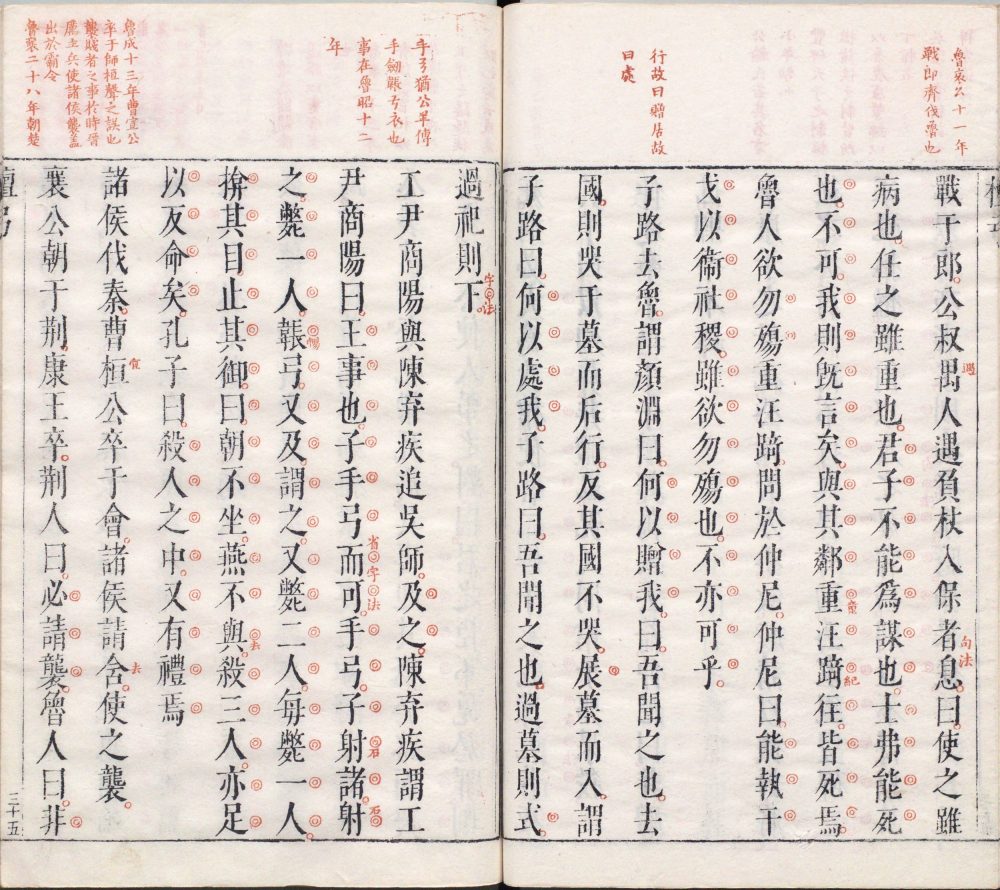 魯哀公十一年
戰即齊伐魯也
行故曰贈居故
曰處
戰于郎公叔禺人遇負杖入保者息曰使之雖
病也任之雖重也君子不能為謀也士弗能死
也不可我則既言矣與其鄰重汪踦往皆死焉
魯人欲勿殤重汪踦問於仲尼仲尼曰能執干
戈以衞社稷雖欲勿殤也不亦可乎
子路去魯謂顏淵曰何以贈我曰吾聞之也去
國則哭于墓而后行反其國不哭展墓而入謂
子路曰何以處我子路曰吾聞之也過墓則式
遇
句法
童
紀
手弓猶公羊傳
手劒韔弓衣也
事在魯昭十二
年
魯成十三年曹宣公
卒于師桓聲之誤也
襲賤者之事於時晉
屬主兵使諸侯襲蓋
出於霸令
魯襄二十八年朝楚
過祀則下
工尹商陽與陳弃疾追吳師及之陳弃疾謂工
尹商陽曰王事也子手弓而可手弓子射諸射
之斃一人韔弓又及謂之又斃二人每斃一人
揜其目止其御曰朝不坐燕不與殺三人亦足
以反命矣孔子曰殺人之中又有禮焉
諸侯伐秦曹桓公卒于會諸侯請含使之襲
襄公朝于荆康王卒荆人曰必請襲魯人曰非
字法
省字法
石
石
暢
去
宣
去
檀弓
三十五